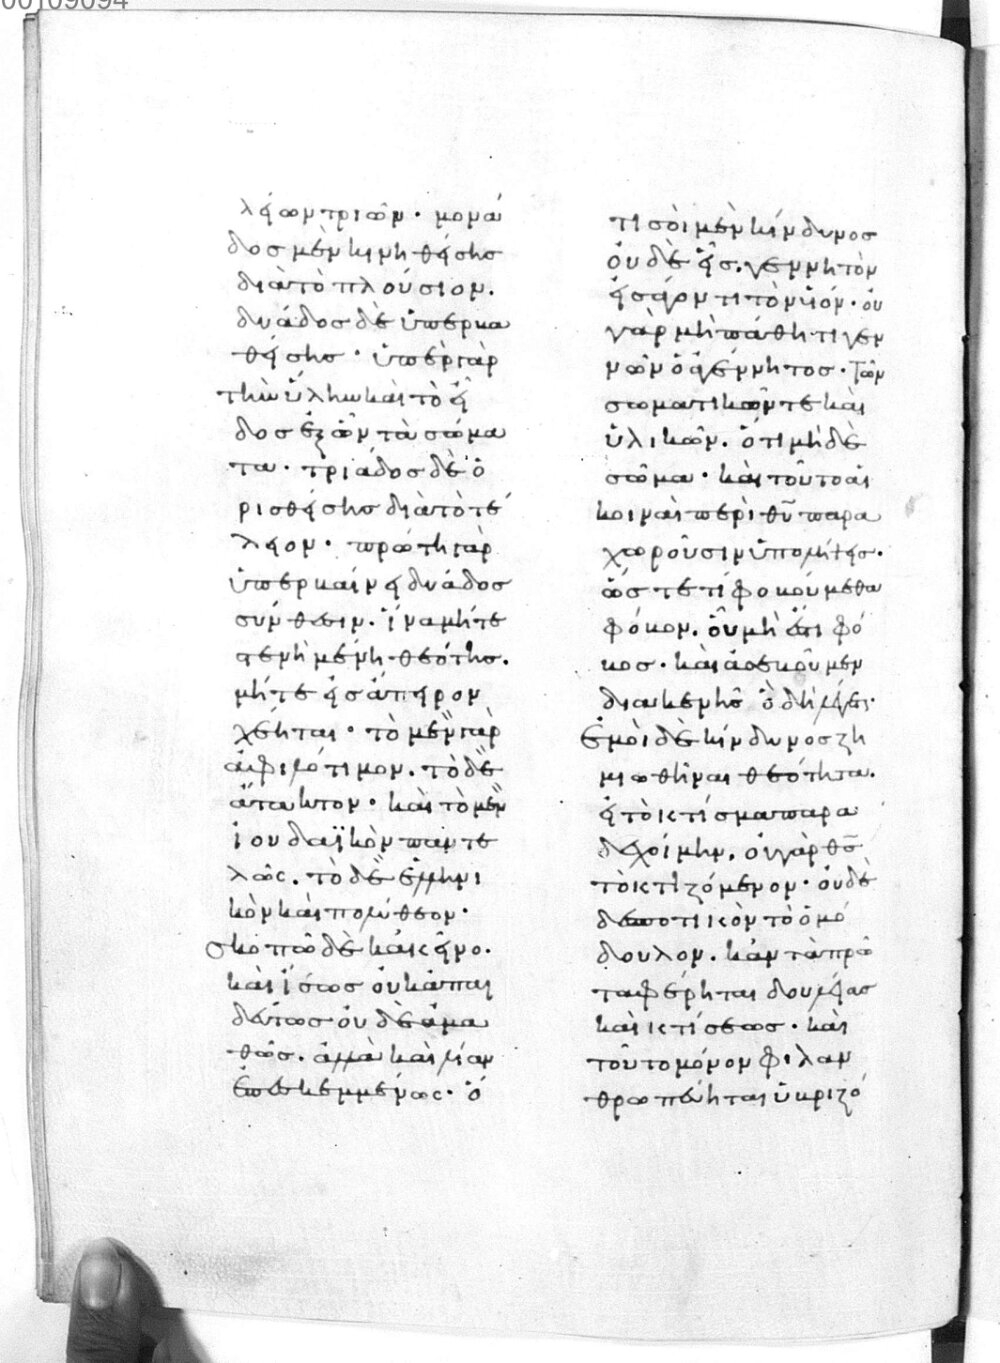 00109094
λείων τριῶν · μονά
δος μὲν κινηθείσης
διὰ τὸ πλούσιον.
δυάδος δὲ ὑπερβα
θείσης · ὑπὲρ γὰρ
τὴν ὕλην καὶ τὸ εἶ
δος ἐξ ὧν τὰ σώμα
τα · τριάδος δὲ ὁ
ρισθείσης διὰ τὸ τέ
λειον · πρώτη γὰρ
ὑπερβαίνει δυάδος
σύνθεσιν. ἵνα μήτε
στενὴ μένῃ θεότης.
μήτε εἰς ἄπειρον
χέηται · τὸ μὲν γὰρ
ἀφιλότιμον. τὸ δὲ
ἄτακτον · καὶ τὸ μὲν
ἰουδαϊκὸν παντε
λῶς. τὸ δὲ ἑλληνι
κὸν καὶ πολύθεον ·
σκοπῶ δὲ κἀκεῖνο.
καὶ ἴσως οὐκ ἀπαι
δεύτως οὐδὲ ἀμα
θῶς. ἀλλὰ καὶ λίαν
ἐπεσκεμμένως · ὅ
τι σοὶ μὲν κίνδυνος
οὐδὲ εἷς. γεννητὸν
εἰσάγοντι τὸν υἱόν · οὐ
γὰρ μὴ πάθῃ τι γεν
νῶν ὁ ἀγέννητος · τῶν
σωματικῶν τε καὶ
ὑλικῶν. ὅτι μὴ δὲ
σῶμα · καὶ τοῦτο αἱ
κοιναὶ περὶ θυ παρα
χωροῦσιν ὑπολήψεις.
ὥστε τί φοβούμεθα
φόβον. οὗ μὴ ἔστι φό
βος · καὶ ἀσεβοῦμεν
διακενῆς ὃ δὴ λέγεται·
ἐμοὶ δὲ κίνδυνος ζη
μιωθῆναι θεότητα.
εἰ τὸ κτίσμα παρα
δεχοίμην. οὐ γὰρ θς
τὸ κτιζόμενον · οὐδὲ
δεσποτικὸν τὸ ὁμό
δουλον. κἂν τὰ πρῶ
τα φέρηται δουλείας
καὶ κτίσεως · καὶ
τοῦτο μόνον φιλαν
θρωπεύηται ὑβριζό